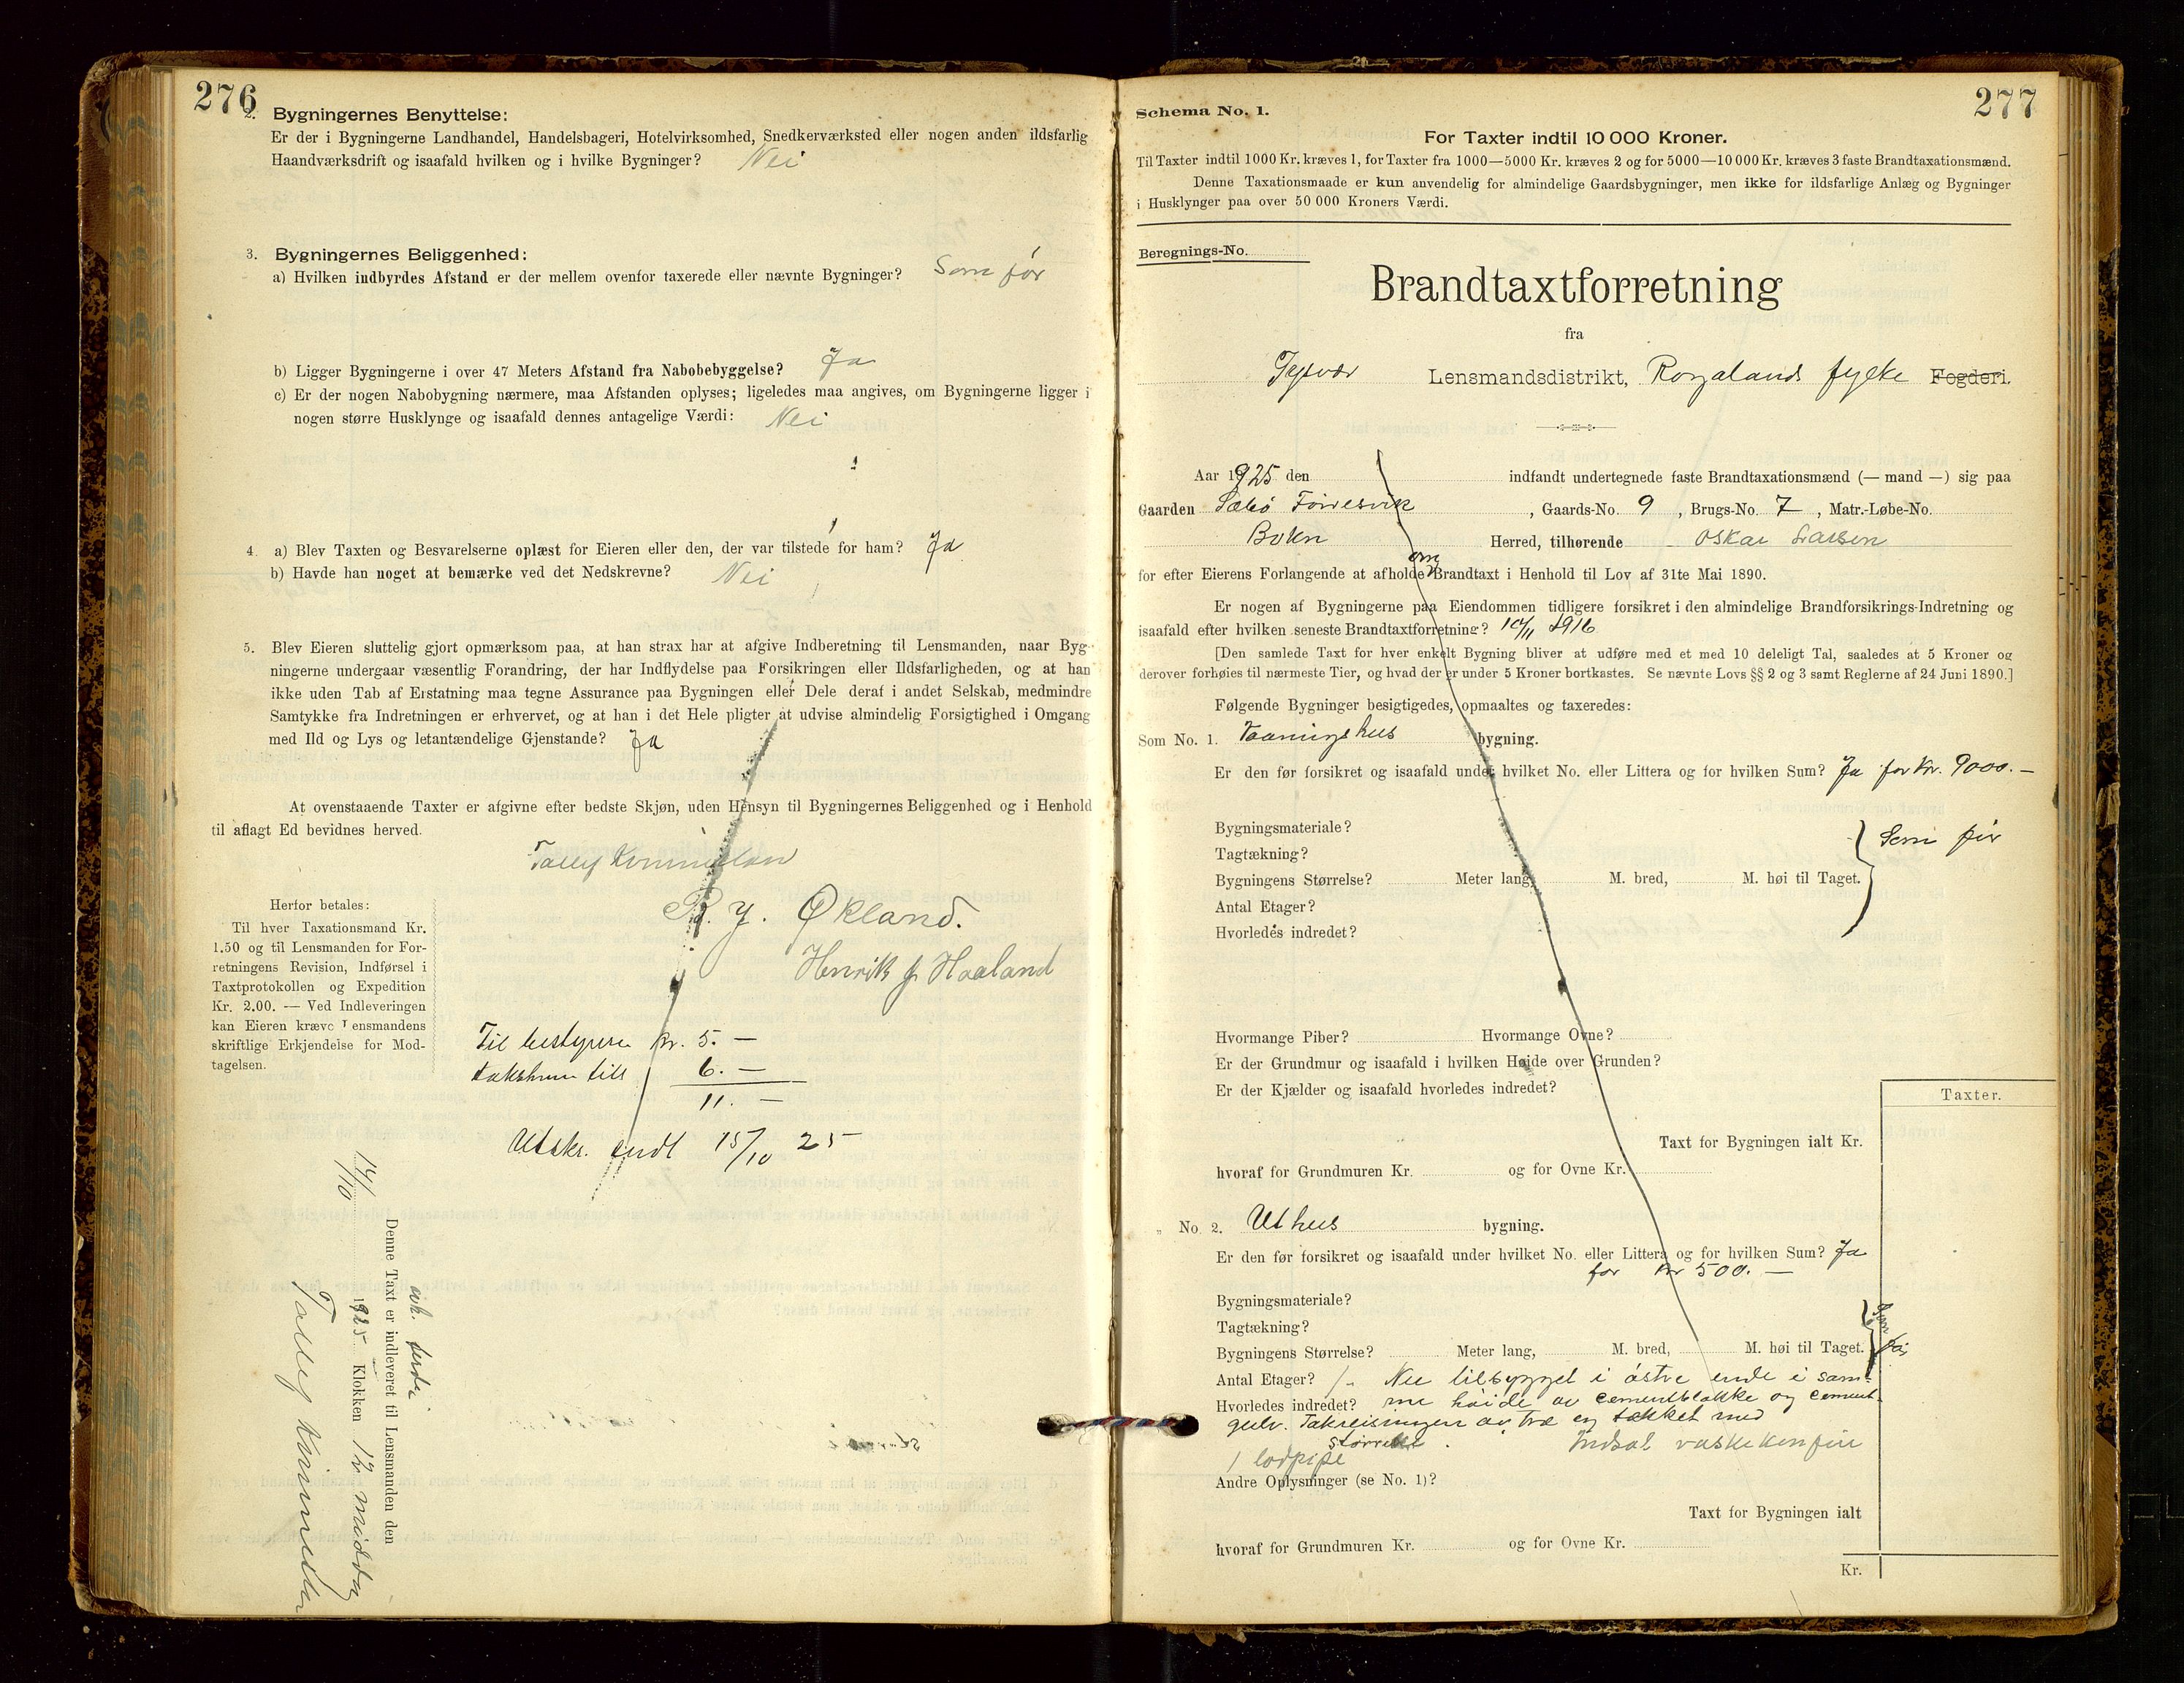 276
2. Bygningernes Benyttelse:
Er der i Bygningerne Landhandel, Handelsbageri, Hotelvirksomhed, Snedkerværksted eller nogen anden ildsfarlig
Haandværksdrift og isaafald hvilken og i hvilke Bygninger? Nei
3. Bygningernes Beliggenhed:
a) Hvilken indbyrdes Afstand er der mellem ovenfor taxerede eller nævnte Bygninger? Som før
b) Ligger Bygningerne i over 47 Meters Afstand fra Nabobebyggelse? Ja
c) Er der nogen Nabobygning nærmere, maa Afstanden oplyses; ligeledes maa angives, om Bygningerne ligger i
nogen større Husklynge og isaafald dennes antagelige Værdi: Nei
4. a) Blev Taxten og Besvarelserne oplæst for Eieren eller den, der var tilstede for ham? Ja
b) Havde han noget at bemærke ved det Nedskrevne? Nei
5. Blev Eieren sluttelig gjort opmærksom paa, at han strax har at afgive Indberetning til Lensmanden, naar Byg-
ningerne undergaar væsentlig Forandring, der har Indflydelse paa Forsikringen eller Ildsfarligheden, og at han
ikke uden Tab af Erstatning maa tegne Assurance paa Bygningen eller Dele deraf i andet Selskab, medmindre
Samtykke fra Indretningen er erhvervet, og at han i det Hele pligter at udvise almindelig Forsigtighed i Omgang
med Ild og Lys og letantændelige Gjenstande? Ja
At ovenstaaende Taxter er afgivne efter bedste Skjøn, uden Hensyn til Bygningernes Beliggenhed og i Henhold
til aflagt Ed bevidnes herved.
R. J. Økland.
Henrik J. Haaland
Herfor betales:
Til hver Taxationsmand Kr.
1.50 og til Lensmanden for For-
retningens Revision, Indførsel i
Taxtprotokollen og Expedition
Kr. 2.00. — Ved Indleveringen
kan Eieren kræve Lensmandens
skriftlige Erkjendelse for Mod-
tagelsen.
Til bestyrere kr. 5. —
6. —
11. —
Utskr. sendt 15/10 25
Denne Taxt er indleveret til Lensmanden den
14/10 1925 Klokken 12 middag
277
Schema No. 1.
For Taxter indtil 10 000 Kroner.
Til Taxter indtil 1000 Kr. kræves 1, for Taxter fra 1000—5000 Kr. kræves 2 og for 5000—10 000 Kr. kræves 3 faste Brandtaxationsmænd.
Denne Taxationsmaade er kun anvendelig for almindelige Gaardsbygninger, men ikke for ildsfarlige Anlæg og Bygninger
i Husklynger paa over 50 000 Kroners Værdi.
Beregnings-No.
Brandtaxtforretning
fra
Tysvær Lensmandsdistrikt, Rogalands fylke Fogderi.
Aar 1925 den indfandt undertegnede faste Brandtaxationsmænd (— mand —) sig paa
Gaarden Sæbø Føresvik, Gaards-No. 9, Brugs-No. 7, Matr.-Løbe-No.
Bokn Herred, tilhørende Oskar Larsen
for efter Eierens Forlangende at afholde om Brandtaxt i Henhold til Lov af 31te Mai 1890.
Er nogen af Bygningerne paa Eiendommen tidligere forsikret i den almindelige Brandforsikrings-Indretning og
isaafald efter hvilken seneste Brandtaxtforretning? 10/11 1916
[Den samlede Taxt for hver enkelt Bygning bliver at udføre med et med 10 deleligt Tal, saaledes at 5 Kroner og
derover forhøies til nærmeste Tier, og hvad der er under 5 Kroner bortkastes. Se nævnte Lovs §§ 2 og 3 samt Reglerne af 24 Juni 1890.]
Følgende Bygninger besigtigedes, opmaaltes og taxeredes:
Som No. 1. Vaaningshus bygning.
Er den før forsikret og isaafald under hvilket No. eller Littera og for hvilken Sum? Ja for kr. 9000. —
Bygningsmateriale?
Tagtækning? Som før
Bygningens Størrelse? Meter lang, M. bred, M. høi til Taget.
Antal Etager?
Hvorledes indredet?
Hvormange Piber? Hvormange Ovne?
Er der Grundmur og isaafald i hvilken Høide over Grunden?
Er der Kjælder og isaafald hvorledes indredet?
Taxter.
Taxt for Bygningen ialt Kr.
hvoraf for Grundmuren Kr. og for Ovne Kr.
" No. 2. Uthus bygning.
Er den før forsikret og isaafald under hvilket No. eller Littera og for hvilken Sum? Ja
for kr 500. —
Bygningsmateriale?
Tagtækning? Som før
Bygningens Størrelse? Meter lang, M. bred, M. høi til Taget.
Antal Etager? 1. Nu tilbygget i østre ende i sam-
Hvorledes indredet? me høide av cementblokke og cement-
gulv. Takreisningen av træ og tækket med
1 lodpipe
Andre Oplysninger (se No. 1)?
Taxt for Bygningen ialt
hvoraf for Grundmuren Kr. og for Ovne Kr.
Kr.